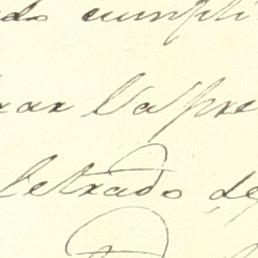 do cumpli
rar la pre
letrado de